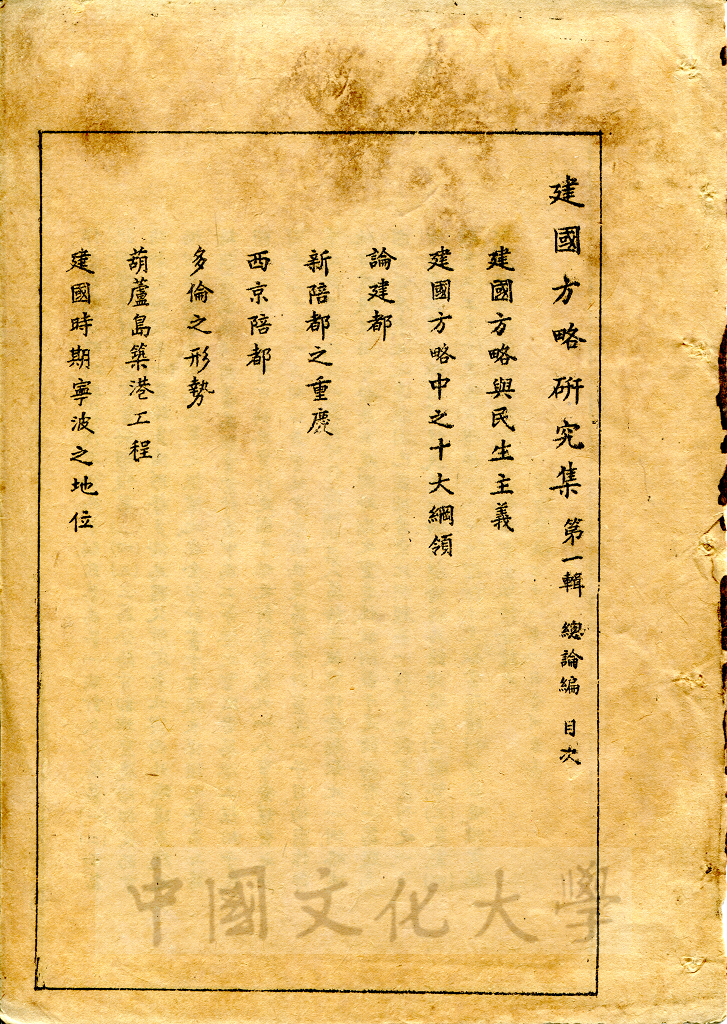 建國方略硏究集 第一輯 總論編 目次
建國方略與民生主義
建國方略中之十大綱領
論建都
新陪都之重慶
西京陪都
多倫之形勢
葫蘆島築港工程
建國時期寧波之地位
中國文化大學